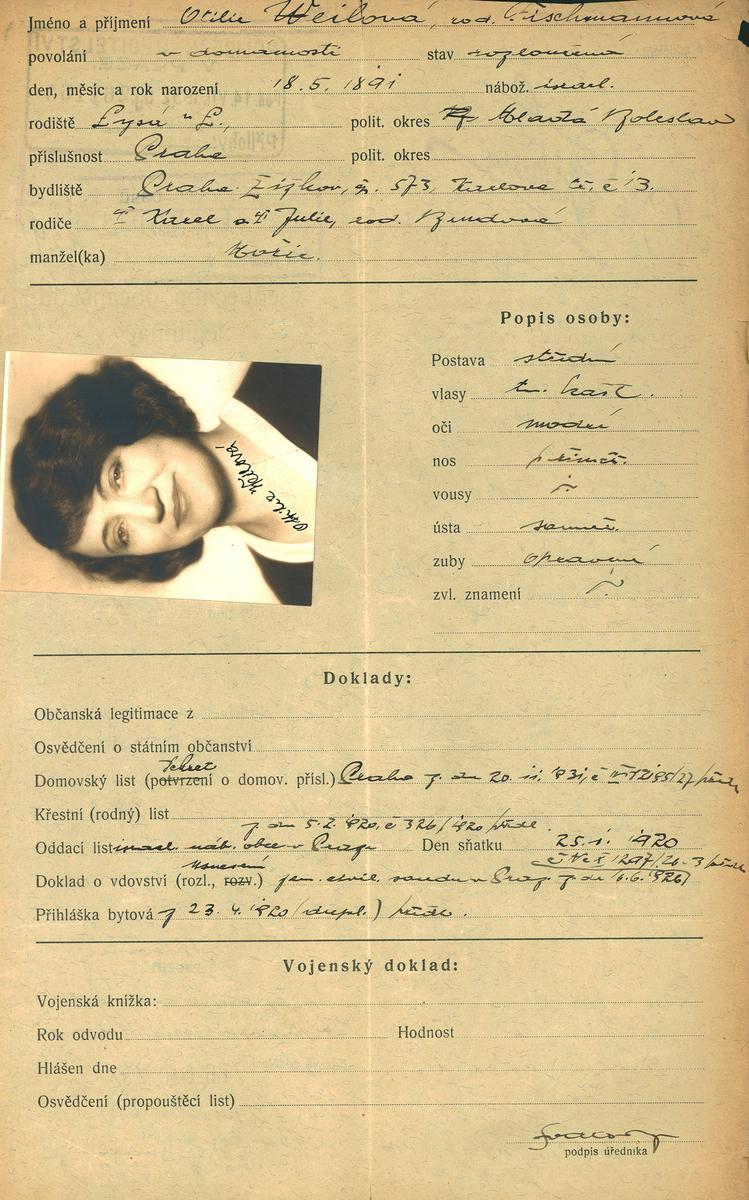 Jméno a příjmení Otilie Weilová, roz. Fischmannová
povolání v domácnosti stav rozloučená
den, měsíc a rok narození 18. 5. 1891 nábož. israel.
rodiště Lysá n L., polit. okres Mladá Boleslav
příslušnost Praha polit. okres
bydliště Praha Žižkov, čp. 573, Karlova tř. č 13.
rodiče Karel a Julie, roz.
manžel(ka) Mořic.
Popis osoby:
Postava střední
vlasy tm. kašt.
oči modré
nos přiměř.
vousy
ústa souměr.
zuby opravené
zvl. znamení
Otilie Weilová
Doklady:
Občanská legitimace z
Osvědčení o státním občanství
Domovský list (potvrzení o domov. přísl.) Praha z dne 20. 11. 1931, č
Křestní (rodný) list
z dne 5. 2. 1920, č 326/1920 předl.
Oddací list israel. náb. obce v Praze Den sňatku 25. 1. 1920
usnesení
Doklad o vdovství (rozl., rozv.) zem. civil. soudu v Praze z dne
Přihláška bytová z 23. 4. 1920 (dupl.) předl.
Vojenský doklad:
Vojenská knížka:
Rok odvodu Hodnost
Hlášen dne
Osvědčení (propouštěcí list)
podpis úředníka